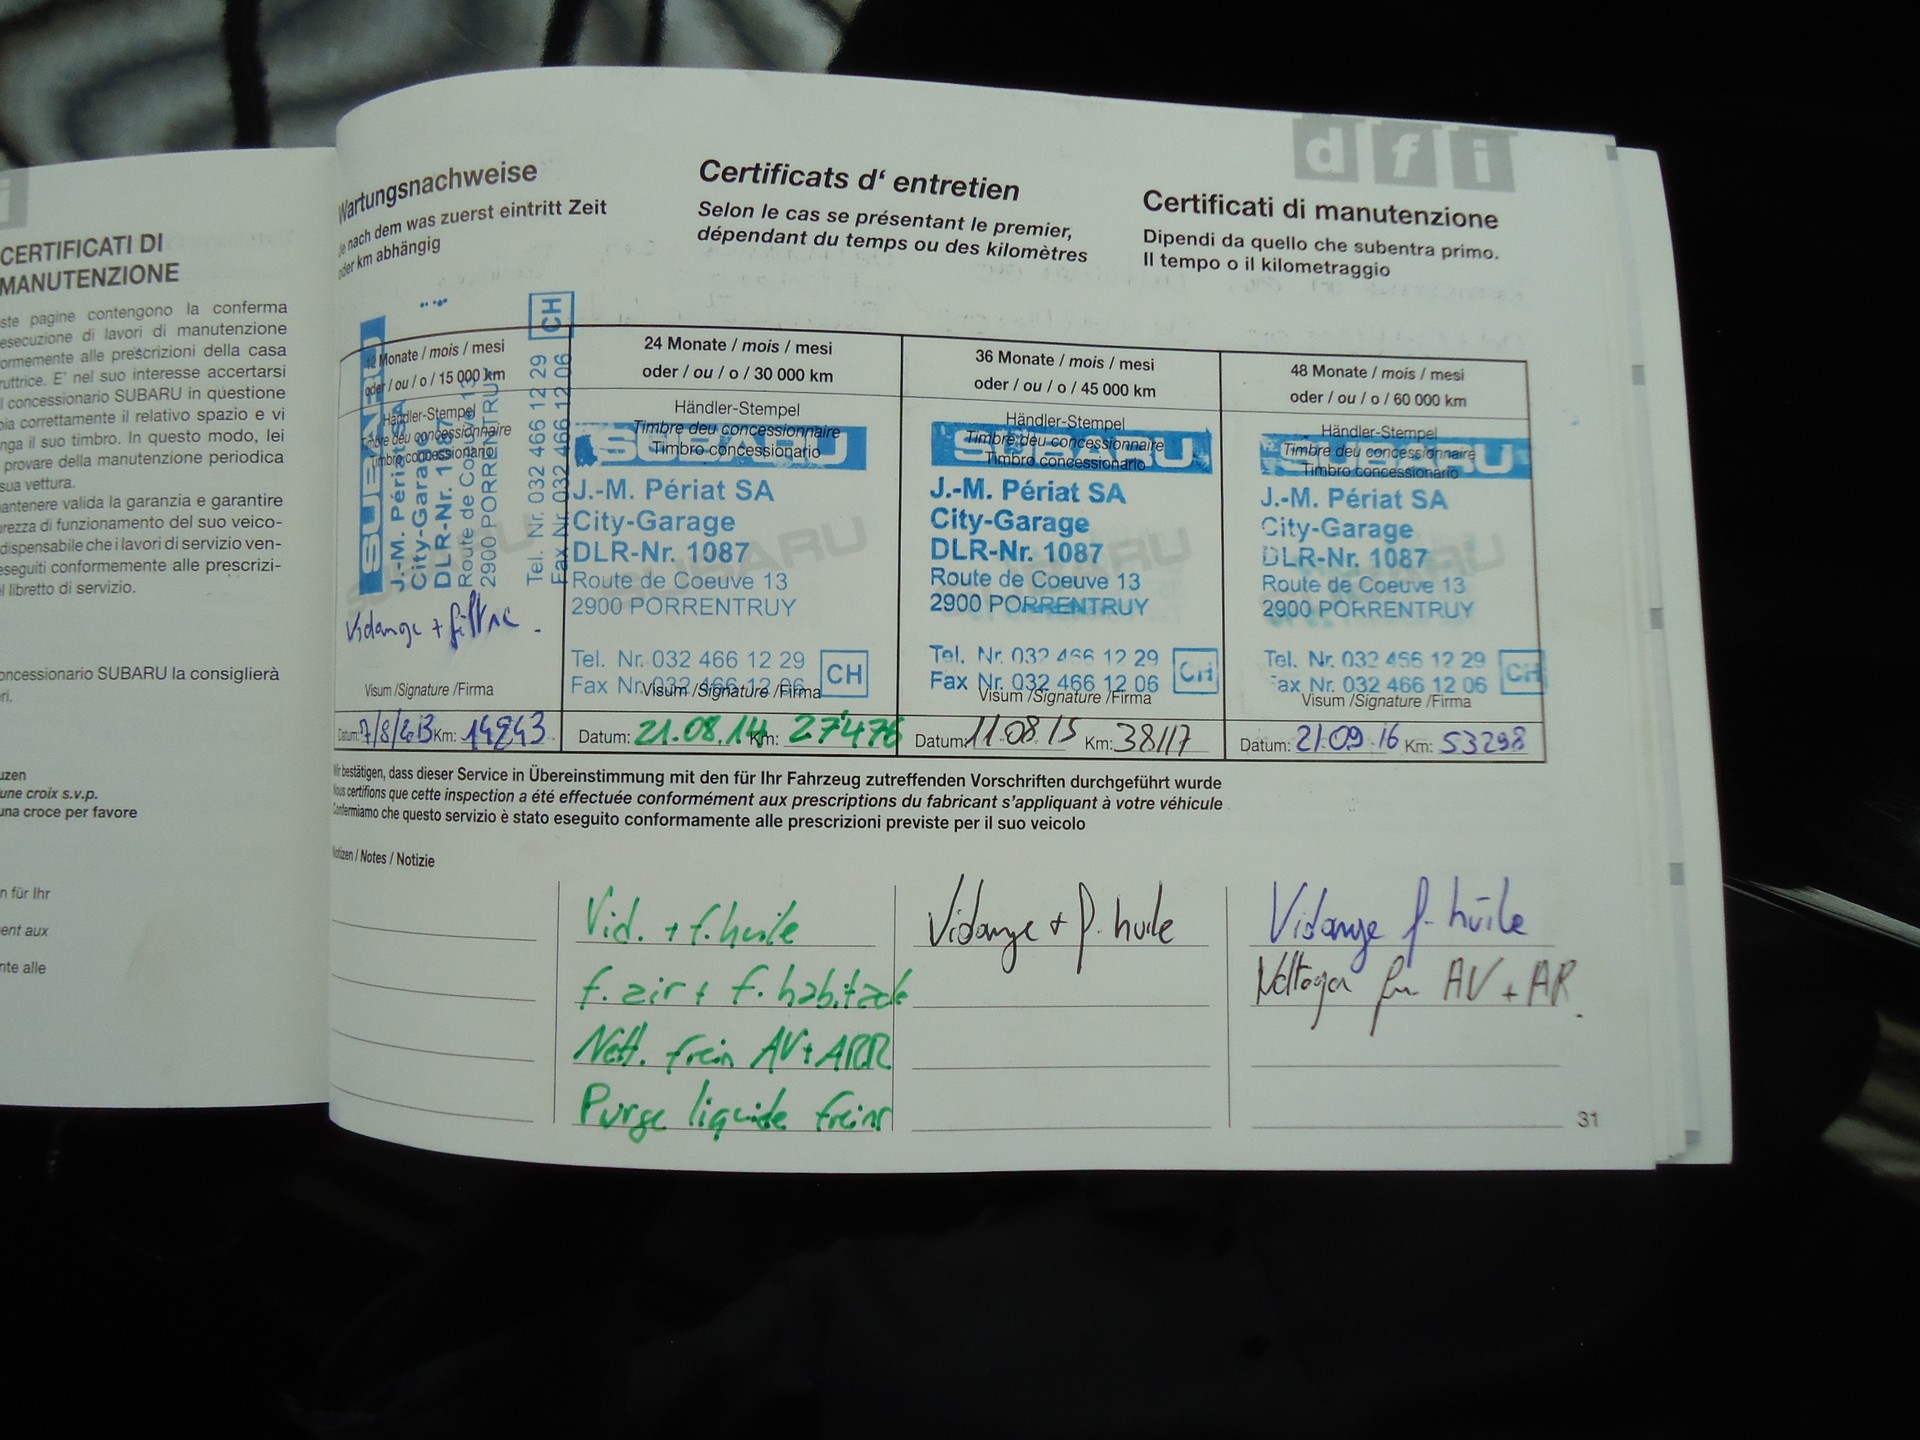 CERTIFICATI DI
MANUTENZIONE
ste pagine contengono la conferma
esecuzione di lavori di manutenzione
ormemente alle prescrizioni della casa
ruttrice. E' nel suo interesse accertarsi
l concessionario SUBARU in questione
pia correttamente il relativo spazio e vi
nga il suo timbro. In questo modo, lei
provare della manutenzione periodica
sua vettura.
antenere valida la garanzia e garantire
urezza di funzionamento del suo veico-
dispensabile che i lavori di servizio ven-
eseguiti conformemente alle prescrizi-
l libretto di servizio.
oncessionario SUBARU la consiglierà
ri.
uzen
une croix s.v.p.
una croce per favore
n für Ihr
ent aux
nte alle
d f i
Wartungsnachweise
Je nach dem was zuerst eintritt Zeit
oder km abhängig
Certificats d' entretien
Selon le cas se présentant le premier,
dépendant du temps ou des kilomètres
Certificati di manutenzione
Dipendi da quello che subentra primo.
Il tempo o il kilometraggio
12 Monate / mois / mesi
oder / ou / o / 15 000 km
Händler-Stempel
Timbre deu concessionnaire
Timbro concessionario
SUBARU
J.-M. Périat SA
City-Garage
DLR-Nr. 1087
Route de Coeuve 13
2900 PORRENTRUY
Tel. Nr. 032 466 12 29
Fax Nr. 032 466 12 06
CH
Vidange + filtre
Visum /Signature /Firma
Datum: 7/8/2013 Km: 14843
24 Monate / mois / mesi
oder / ou / o / 30 000 km
Händler-Stempel
Timbre deu concessionnaire
Timbro concessionario
SUBARU
J.-M. Périat SA
City-Garage
DLR-Nr. 1087
Route de Coeuve 13
2900 PORRENTRUY
Tel. Nr. 032 466 12 29
Fax Nr. 032 466 12 06
CH
Visum /Signature /Firma
Datum: 21.08.14 Km: 27'476
36 Monate / mois / mesi
oder / ou / o / 45 000 km
Händler-Stempel
Timbre deu concessionnaire
Timbro concessionario
SUBARU
J.-M. Périat SA
City-Garage
DLR-Nr. 1087
Route de Coeuve 13
2900 PORRENTRUY
Tel. Nr. 032 466 12 29
Fax Nr. 032 466 12 06
CH
Visum /Signature /Firma
Datum: 11.08.15 Km: 38117
48 Monate / mois / mesi
oder / ou / o / 60 000 km
Händler-Stempel
Timbre deu concessionnaire
Timbro concessionario
SUBARU
J.-M. Périat SA
City-Garage
DLR-Nr. 1087
Route de Coeuve 13
2900 PORRENTRUY
Tel. Nr. 032 466 12 29
Fax Nr. 032 466 12 06
CH
Visum /Signature /Firma
Datum: 21.09.16 Km: 53298
Wir bestätigen, dass dieser Service in Übereinstimmung mit den für Ihr Fahrzeug zutreffenden Vorschriften durchgeführt wurde
Nous certifions que cette inspection a été effectuée conformément aux prescriptions du fabricant s'appliquant à votre véhicule
Confermiamo che questo servizio è stato eseguito conformamente alle prescrizioni previste per il suo veicolo
Notizen / Notes / Notizie
Vid. + f. huile
f. air + f. habitacle
Nett. frein AV + ARR
Purge liquide freins
Vidange + f. huile
Vidange f. huile
Nettoyer AV + AR.
31